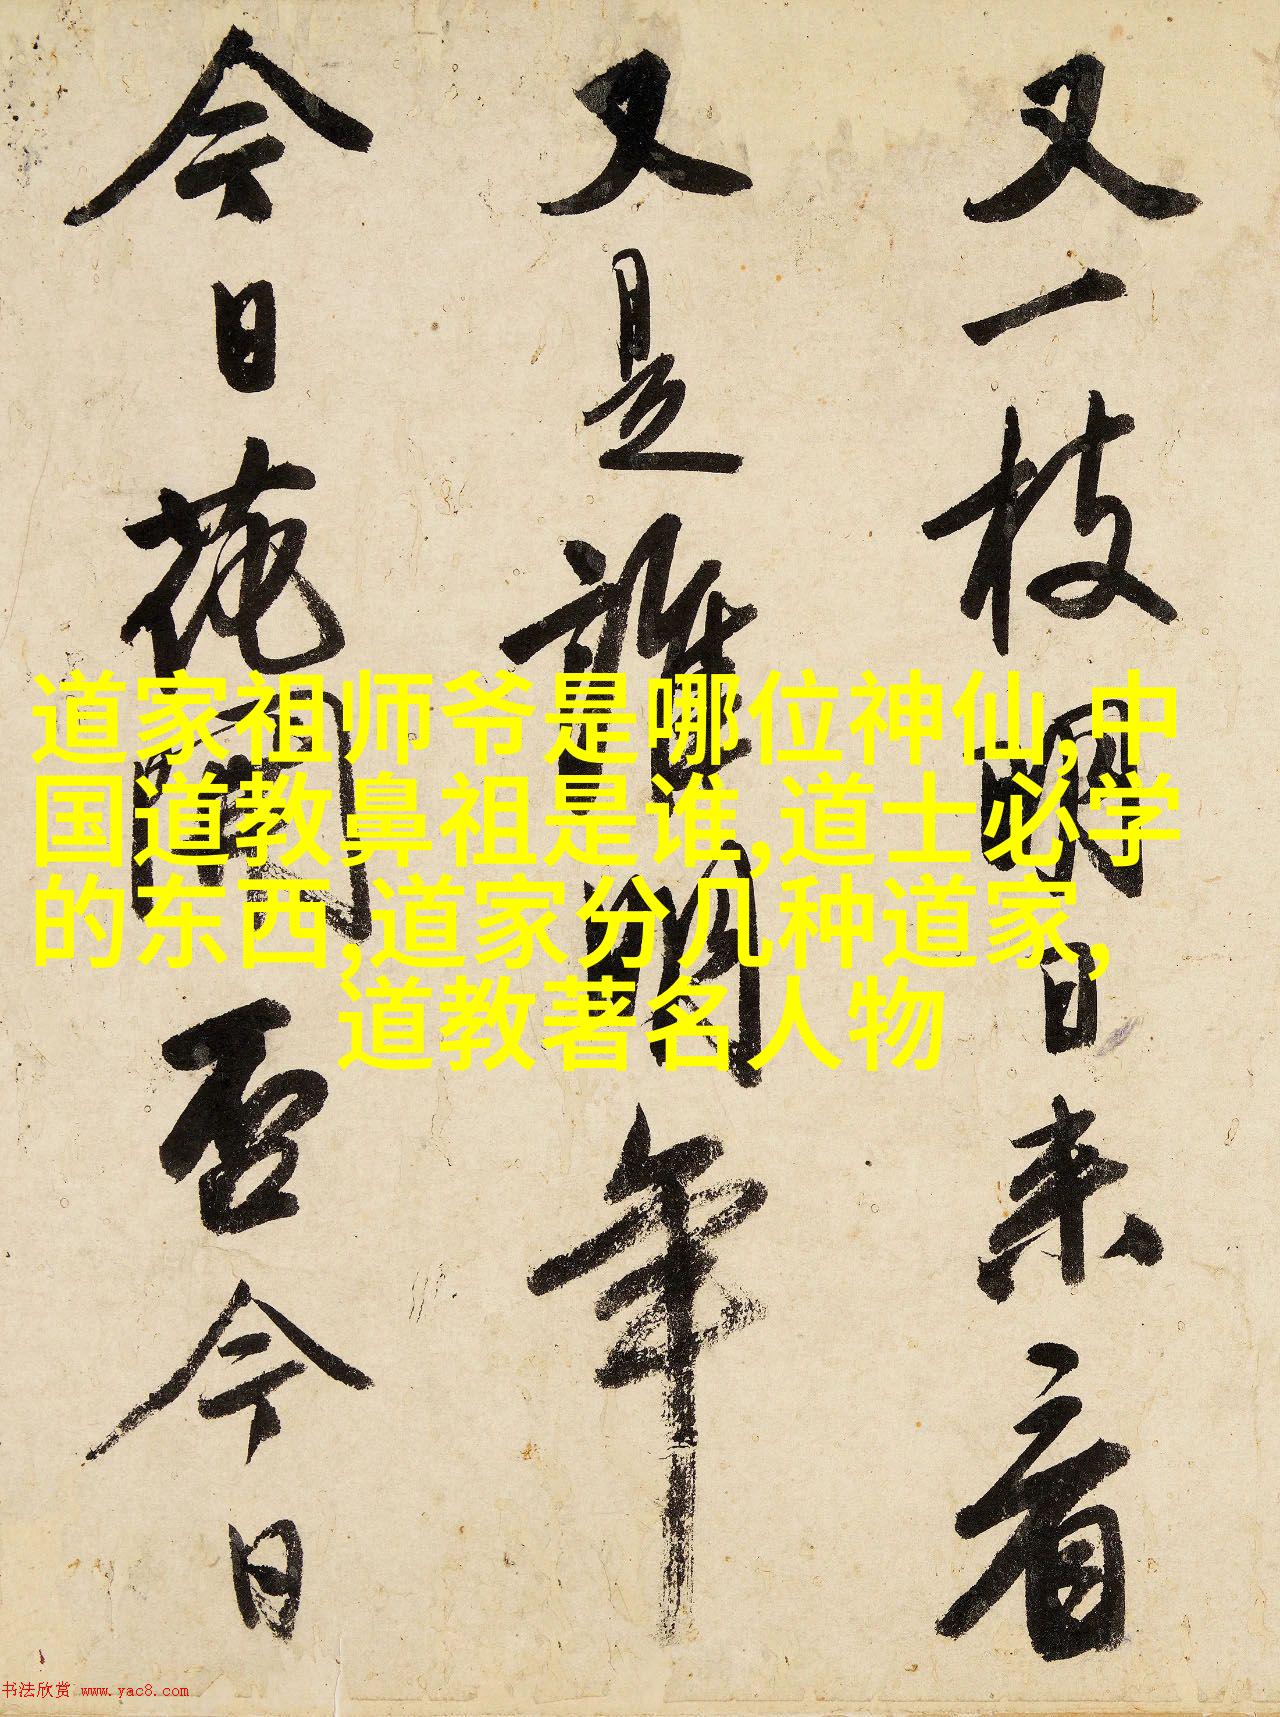 又一枝明日来看
又是誰明年
今日花開否今日
道家祖师爷是哪位神仙,中
国道教鼻祖是谁,道士必学
的东西,道家分几种道家,
道教著名人物
书法欣赏 www.yac8.com